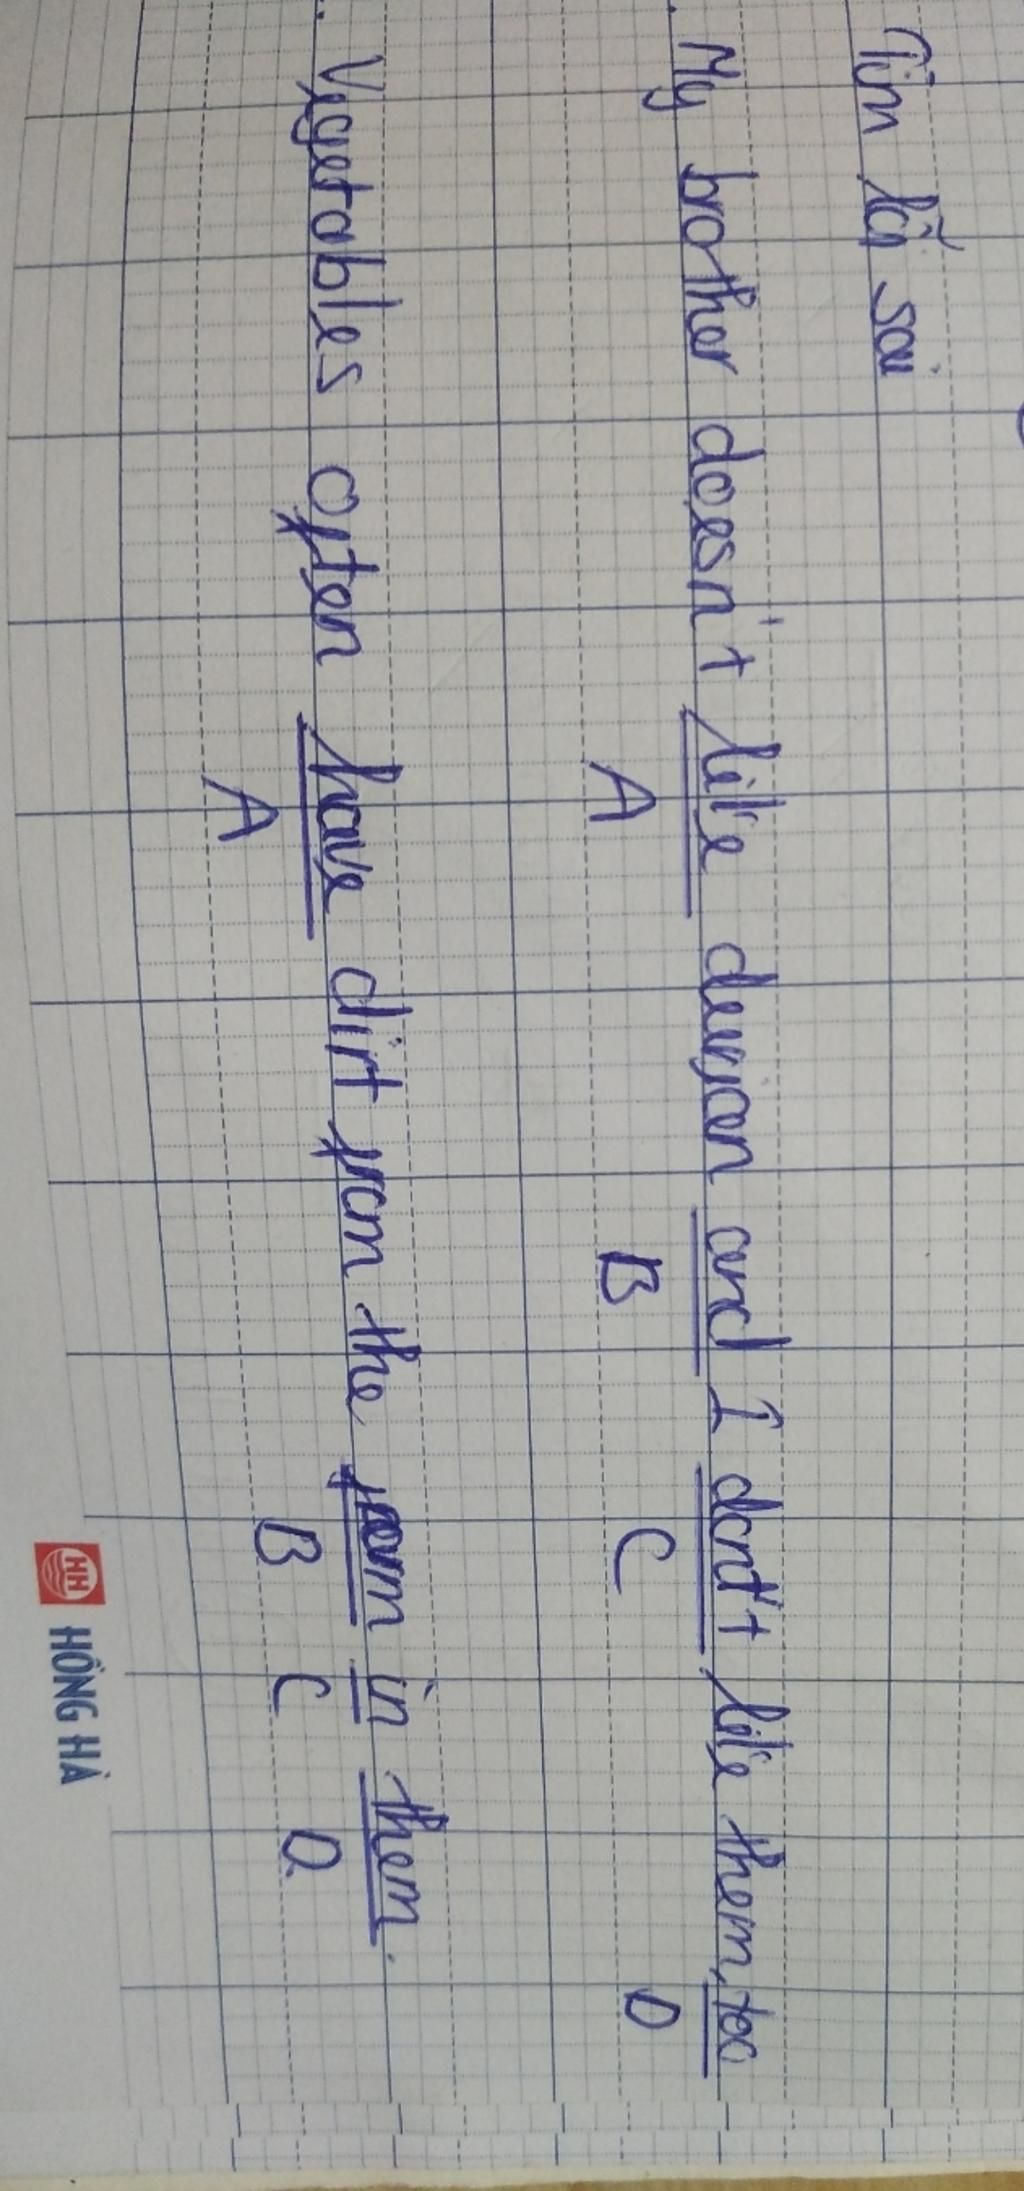 Tìm lỗi sai
. My brother doesn't like dewan and I dont't like them, too
A B C D
. Vegetables often have dirt from the farm in them.
A B C D
HH HỒNG HÀ